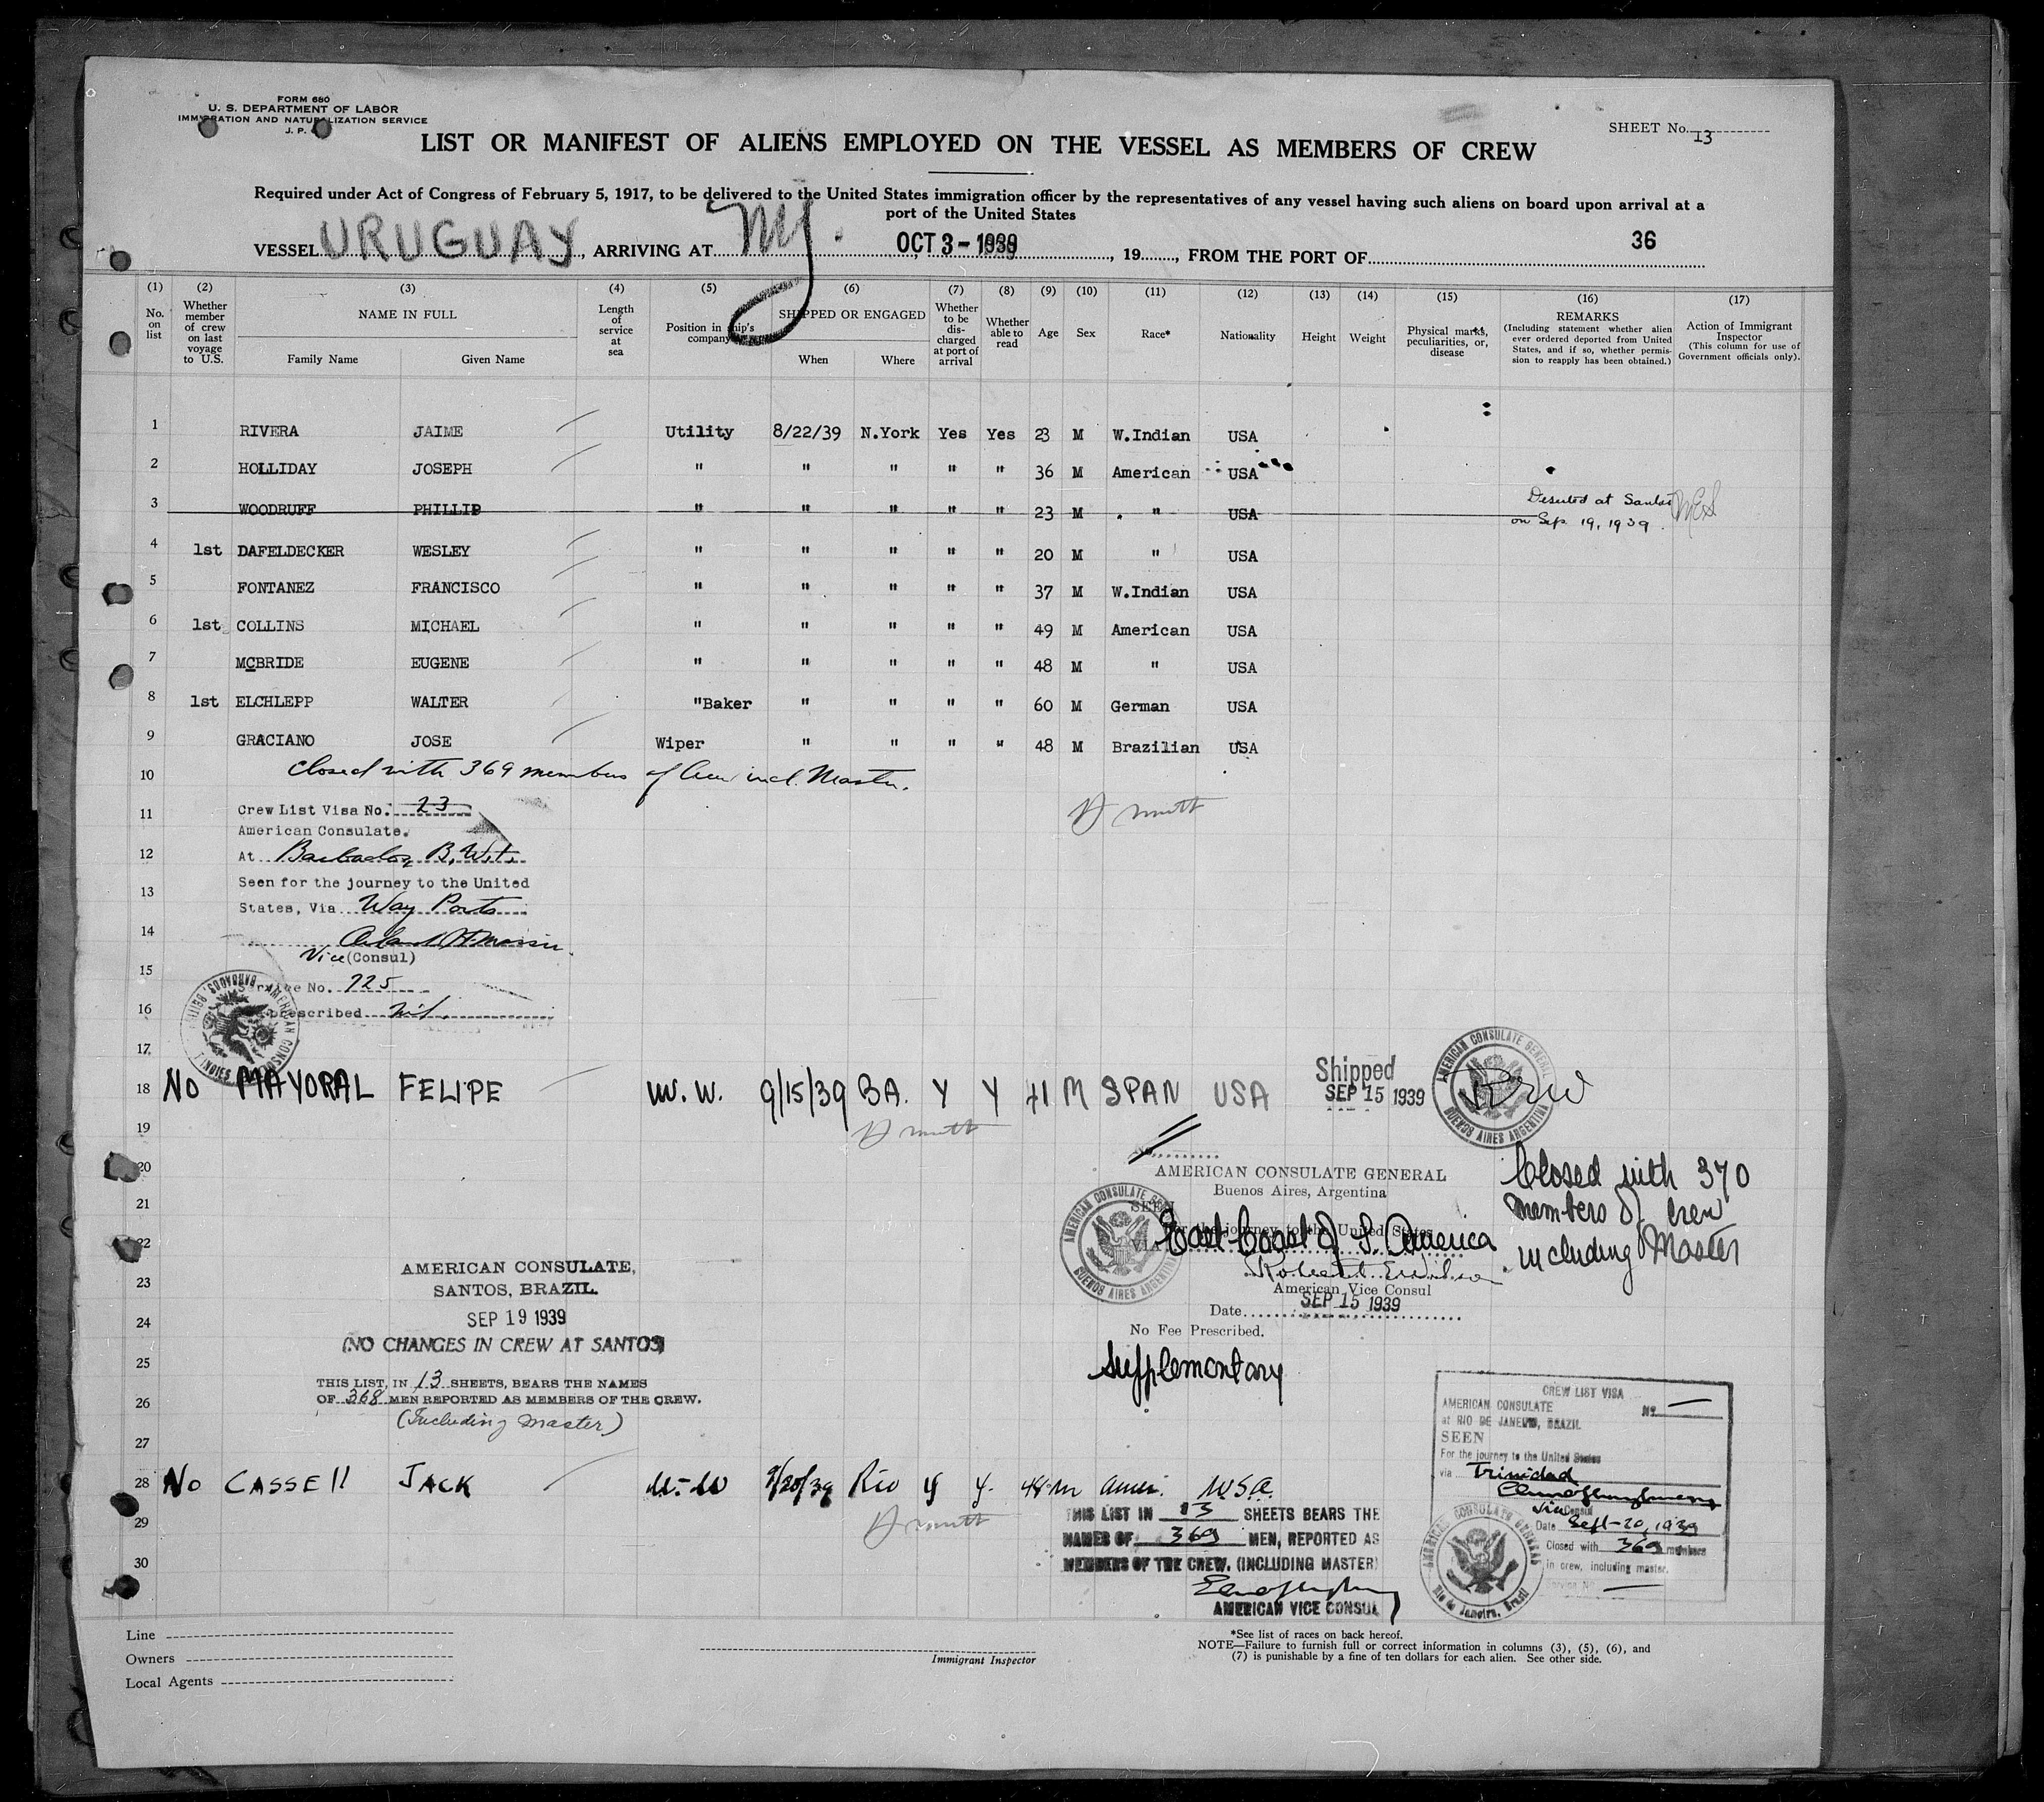 FORM 680
U. S. DEPARTMENT OF LABOR
IMMIGRATION AND NATURALIZATION SERVICE
J. P.
SHEET No. 13
LIST OR MANIFEST OF ALIENS EMPLOYED ON THE VESSEL AS MEMBERS OF CREW
Required under Act of Congress of February 5, 1917, to be delivered to the United States immigration officer by the representatives of any vessel having such aliens on board upon arrival at a
port of the United States
VESSEL URUGUAY, ARRIVING AT NY. OCT 3 - 1939, 19......, FROM THE PORT OF 36
(1) (2) (3) (4) (5) (6) (7) (8) (9) (10) (11) (12) (13) (14) (15) (16) (17)
No. on list
Whether member of crew on last voyage to U.S.
NAME IN FULL
Family Name Given Name
Length of service at sea
Position in ship's company
SHIPPED OR ENGAGED
When Where
Whether to be discharged at port of arrival
Whether able to read
Age
Sex
Race*
Nationality
Height
Weight
Physical marks, peculiarities, or, disease
REMARKS
(Including statement whether alien ever ordered deported from United States, and if so, whether permission to reapply has been obtained.)
Action of Immigrant Inspector
(This column for use of Government officials only).
1 RIVERA JAIME Utility 8/22/39 N.York Yes Yes 23 M W.Indian USA
2 HOLLIDAY JOSEPH " " " " " 36 M American USA
3 WOODRUFF PHILLIP " " " " " 23 M " USA Deserted at Santos
on Sep. 19, 1939.
4 1st DAFELDECKER WESLEY " " " " " 20 M " USA
5 FONTANEZ FRANCISCO " " " " " 37 M W.Indian USA
6 1st COLLINS MICHAEL " " " " " 49 M American USA
7 MCBRIDE EUGENE " " " " " 48 M " USA
8 1st ELCHLEPP WALTER "Baker " " " " 60 M German USA
9 GRACIANO JOSE Wiper " " " " 48 M Brazilian USA
10 Closed with 369 members of Crew incl. Master.
11 Crew List Visa No. 23
American Consulate.
12 At Barbados, B.W.I.
Seen for the journey to the United
13 States, Via Way Ports
14
Vice (Consul)
15 Service No. 725
16 prescribed nil.
AMERICAN CONSULATE BARBADOS, BRITISH WEST INDIES
17
18 No MAYORAL FELIPE W.W. 9/15/39 BA. Y Y 41 M SPAN USA
Shipped
SEP 15 1939
AMERICAN CONSULATE GENERAL BUENOS AIRES ARGENTINA
REW
19
20
AMERICAN CONSULATE GENERAL
Buenos Aires, Argentina
SEEN
For the journey to the United States
VIA East Coast of S. America
Robert E. Wilson
American Vice Consul
Date SEP 15 1939
No Fee Prescribed.
Supplementary
AMERICAN CONSULATE GENERAL BUENOS AIRES ARGENTINA
Closed with 370
members of crew
including Master
21
22
AMERICAN CONSULATE,
23 SANTOS, BRAZIL.
24 SEP 19 1939
(NO CHANGES IN CREW AT SANTOS)
25
THIS LIST, IN 13 SHEETS, BEARS THE NAMES
26 OF 368 MEN REPORTED AS MEMBERS OF THE CREW.
(Including Master)
27
28 No CASSELL JACK 9/20/39 Rio Y Y. 48 M Amer. USA.
29
30
THIS LIST IN 13 SHEETS BEARS THE
NAMES OF 369 MEN, REPORTED AS
MEMBERS OF THE CREW. (INCLUDING MASTER)
AMERICAN VICE CONSUL
CREW LIST VISA
AMERICAN CONSULATE No. —
at RIO DE JANEIRO, BRAZIL
SEEN
For the journey to the United States
via Trinidad
Vice Consul
Date Sept-20, 1939
Closed with 369 members
in crew, including master.
Service No. —
AMERICAN CONSULATE GENERAL Rio de Janeiro, Brazil
Line
Owners
Local Agents
Immigrant Inspector
*See list of races on back hereof.
NOTE—Failure to furnish full or correct information in columns (3), (5), (6), and
(7) is punishable by a fine of ten dollars for each alien. See other side.